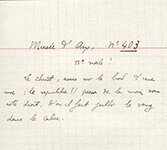 Musée d'Aix, N° 403
N° mêle !
Le Christ, assis sur le bord d'une
une (le sépulcre ?) pose de la main
côté droit, d'où il fait jaillir le sang
dans le calice.